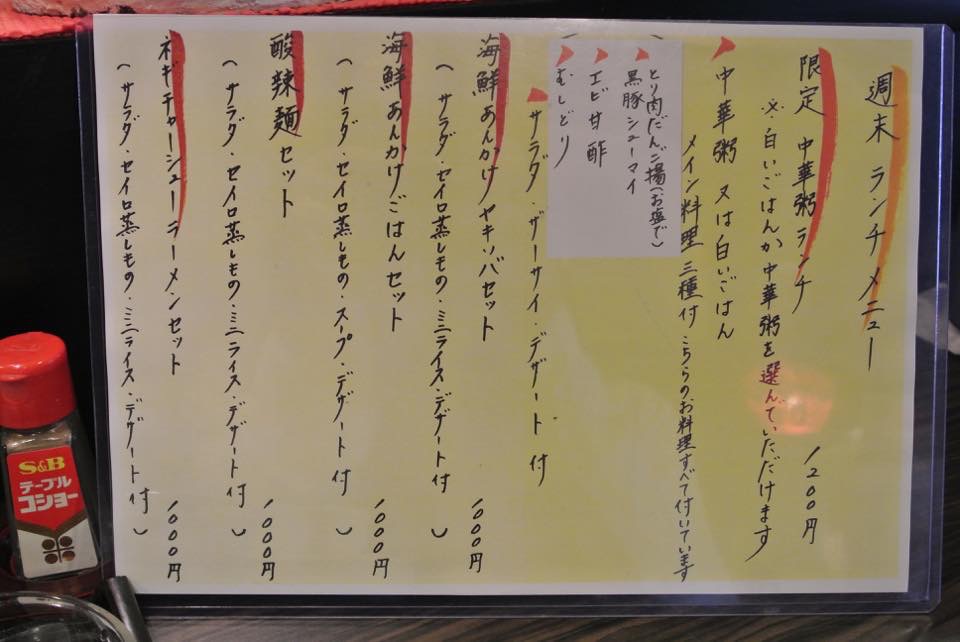 週末 ランチメニュー
限定 中華粥ランチ 1200円
※白いごはんか中華粥を選んでいただけます
中華粥 又は白いごはん
メイン料理 三種付 こちらのお料理すべて付いています
とり肉だんご揚(お塩で)
黒豚シューマイ
エビ甘酢
むしどり
サラダ・ザーサイ・デザート付
海鮮あんかけヤキソバセット 1000円
(サラダ・セイロ蒸しもの・ミニライス・デザート付)
海鮮あんかけごはんセット 1000円
(サラダ・セイロ蒸しもの・スープ・デザート付)
酸辣麺セット 1000円
(サラダ・セイロ蒸しもの・ミニライス・デザート付)
ネギチャーシューラーメンセット 1000円
(サラダ・セイロ蒸しもの・ミニライス・デザート付)
S&B
テーブル
コショー